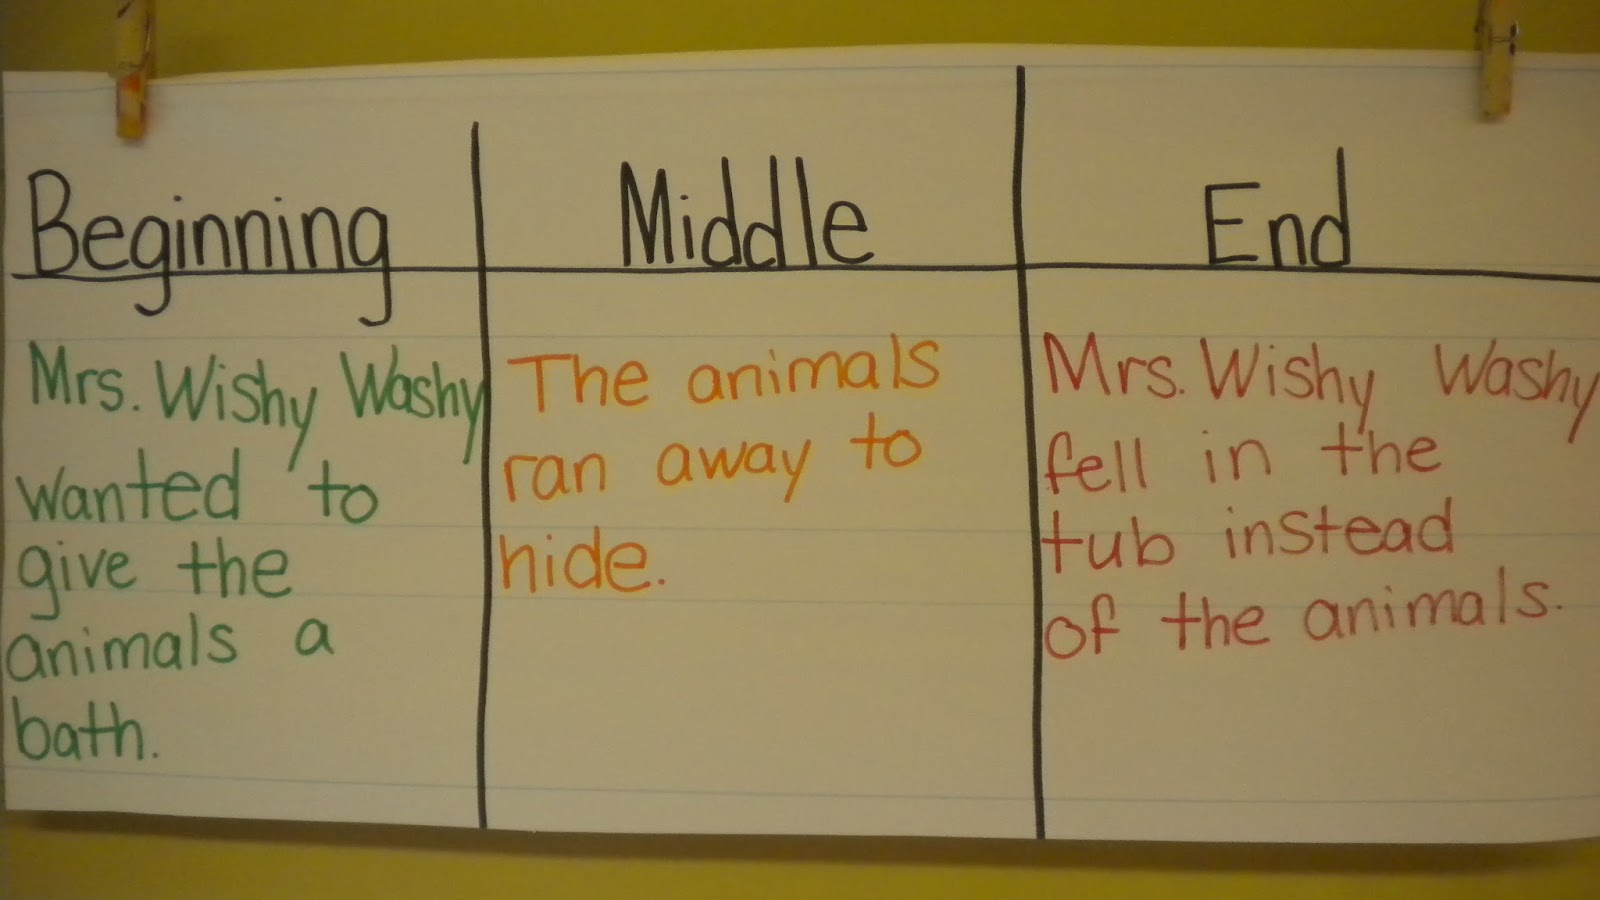 Beginning
Mrs. Wishy Washy
wanted to
give the
animals a
bath.
Middle
The animals
ran away to
hide.
End
Mrs. Wishy Washy
fell in the
tub instead
of the animals.